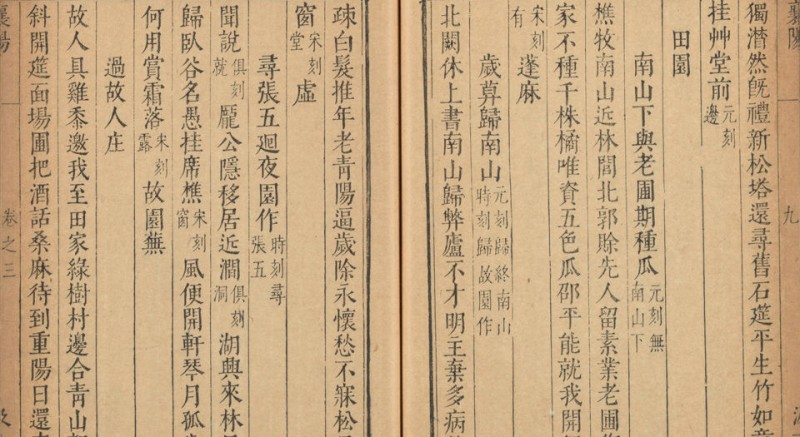 襄陽 九
獨潸然旣禮新松塔還尋舊石筵平生竹如意
挂艸堂前元刻邊
田園
南山下與老圃期種瓜元刻無南山下
樵牧南山近林閭北郭賒先人留素業老圃
家不種千株橘唯資五色瓜邵平能就我開
宋刻有蓬麻
歲暮歸南山元刻歸終南山時刻歸故園作
北闕休上書南山歸弊廬不才明主棄多病
疎白髮推年老青陽逼歲除永懷愁不寐松
窗宋刻堂虛
尋張五迴夜園作時刻尋張五
聞說俱刻就龐公隱移居近澗俱刻洞湖興來林
歸臥谷名愚挂席樵宋刻窗風便開軒琴月孤
何用賞霜落宋刻露故園蕪
過故人庄
故人具雞黍邀我至田家綠樹村邊合青山
斜開筵面場圃把酒話桑麻待到重陽日還
襄陽 卷之三